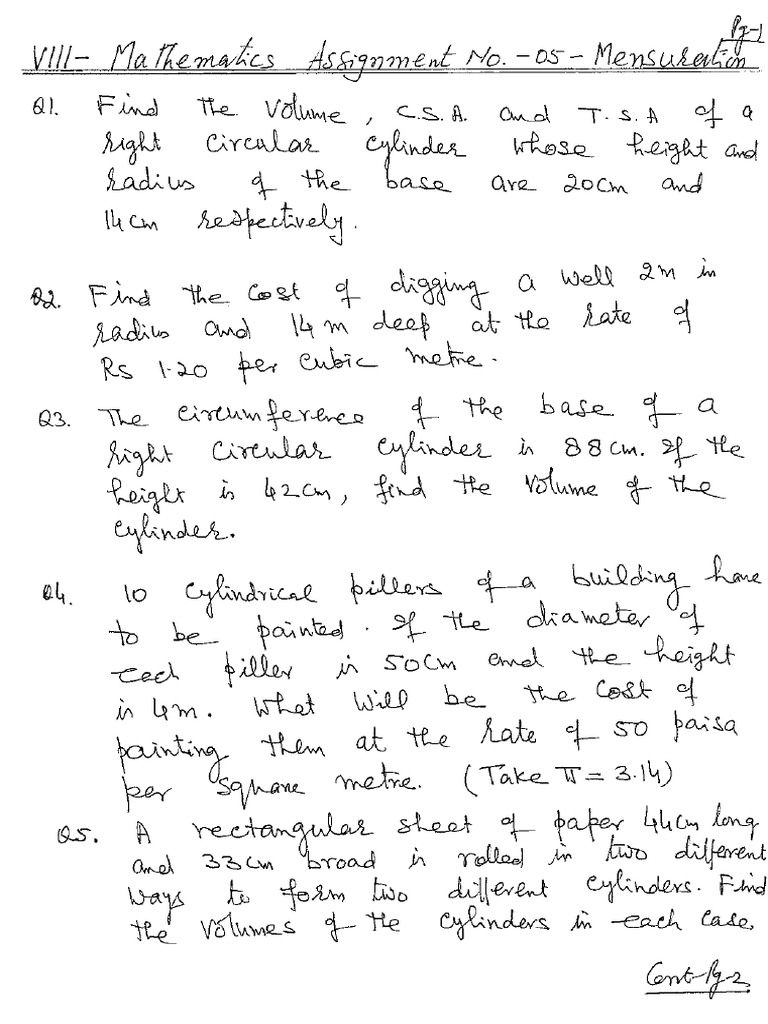 Pg-1
VIII- Mathematics Assignment No.-05- Mensuration
Q1. Find the Volume, C.S.A. and T.S.A of a
right circular cylinder whose height and
radius of the base are 20cm and
14cm respectively.
Q2. Find the cost of digging a well 2m in
radius and 14m deep at the rate of
Rs 1.20 per cubic metre.
Q3. The circumference of the base of a
right circular cylinder is 88cm. If the
height is 42cm, find the volume of the
cylinder.
Q4. 10 cylindrical pillers of a building have
to be painted. If the diameter of
each piller is 50cm and the height
is 4m. What will be the cost of
painting them at the rate of 50 paisa
per square metre. (Take π = 3.14)
Q5. A rectangular sheet of paper 44cm long
and 33cm broad is rolled in two different
ways to form two different cylinders. Find
the volumes of the cylinders in each case.
Cont-Pg-2